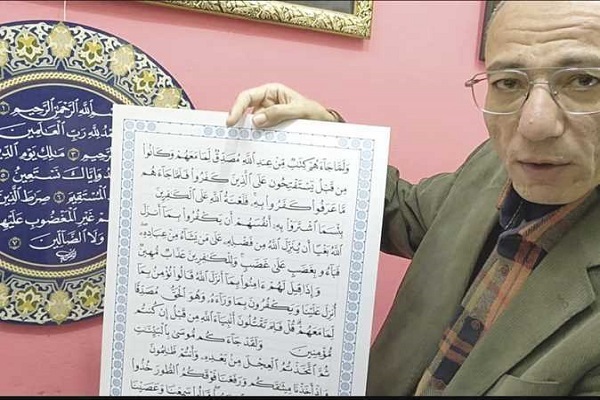 بسم ٱللَّهِ ٱلرَّحْمَٰنِ ٱلرَّحِيمِ ١
لِلَّهِ رَبِّ ٱلْعَٰلَمِينَ
مَٰلِكِ يَوْمِ ٱلدِّينِ
وَإِيَّاكَ نَسْتَعِينُ
ٱلْمُسْتَقِيمَ ٦ صِرَٰطَ ٱلَّذِينَ
غَيْرِ ٱلْمَغْضُوبِ عَلَيْهِمْ
وَلَا ٱلضَّآلِّينَ ٧
وَلَمَّا جَآءَهُمْ كِتَٰبٌ مِّنْ عِندِ ٱللَّهِ مُصَدِّقٌ لِّمَا مَعَهُمْ وَكَانُوا۟
مِن قَبْلُ يَسْتَفْتِحُونَ عَلَى ٱلَّذِينَ كَفَرُوا۟ فَلَمَّا جَآءَهُم
مَّا عَرَفُوا۟ كَفَرُوا۟ بِهِۦ فَلَعْنَةُ ٱللَّهِ عَلَى ٱلْكَٰفِرِينَ
بِئْسَمَا ٱشْتَرَوْا۟ بِهِۦٓ أَنفُسَهُمْ أَن يَكْفُرُوا۟ بِمَآ أَنزَلَ
ٱللَّهُ بَغْيًا أَن يُنَزِّلَ ٱللَّهُ مِن فَضْلِهِۦ عَلَىٰ مَن يَشَآءُ مِنْ عِبَادِهِۦ
فَبَآءُو بِغَضَبٍ عَلَىٰ غَضَبٍ وَلِلْكَٰفِرِينَ عَذَابٌ مُّهِينٌ
وَإِذَا قِيلَ لَهُمْ ءَامِنُوا۟ بِمَآ أَنزَلَ ٱللَّهُ قَالُوا۟ نُؤْمِنُ بِمَآ
أُنزِلَ عَلَيْنَا وَيَكْفُرُونَ بِمَا وَرَآءَهُۥ وَهُوَ ٱلْحَقُّ مُصَدِّقًا
لِّمَا مَعَهُمْ قُلْ فَلِمَ تَقْتُلُونَ أَنۢبِيَآءَ ٱللَّهِ مِن قَبْلُ إِن كُنتُم
مُّؤْمِنِينَ وَلَقَدْ جَآءَكُم مُّوسَىٰ بِٱلْبَيِّنَٰتِ
ثُمَّ ٱتَّخَذْتُمُ ٱلْعِجْلَ مِنۢ بَعْدِهِۦ وَأَنتُمْ ظَٰلِمُونَ
وَإِذْ أَخَذْنَا مِيثَٰقَكُمْ وَرَفَعْنَا فَوْقَكُمُ ٱلطُّورَ خُذُوا۟
قَالُوا۟ سَمِعْنَا وَعَصَيْنَا